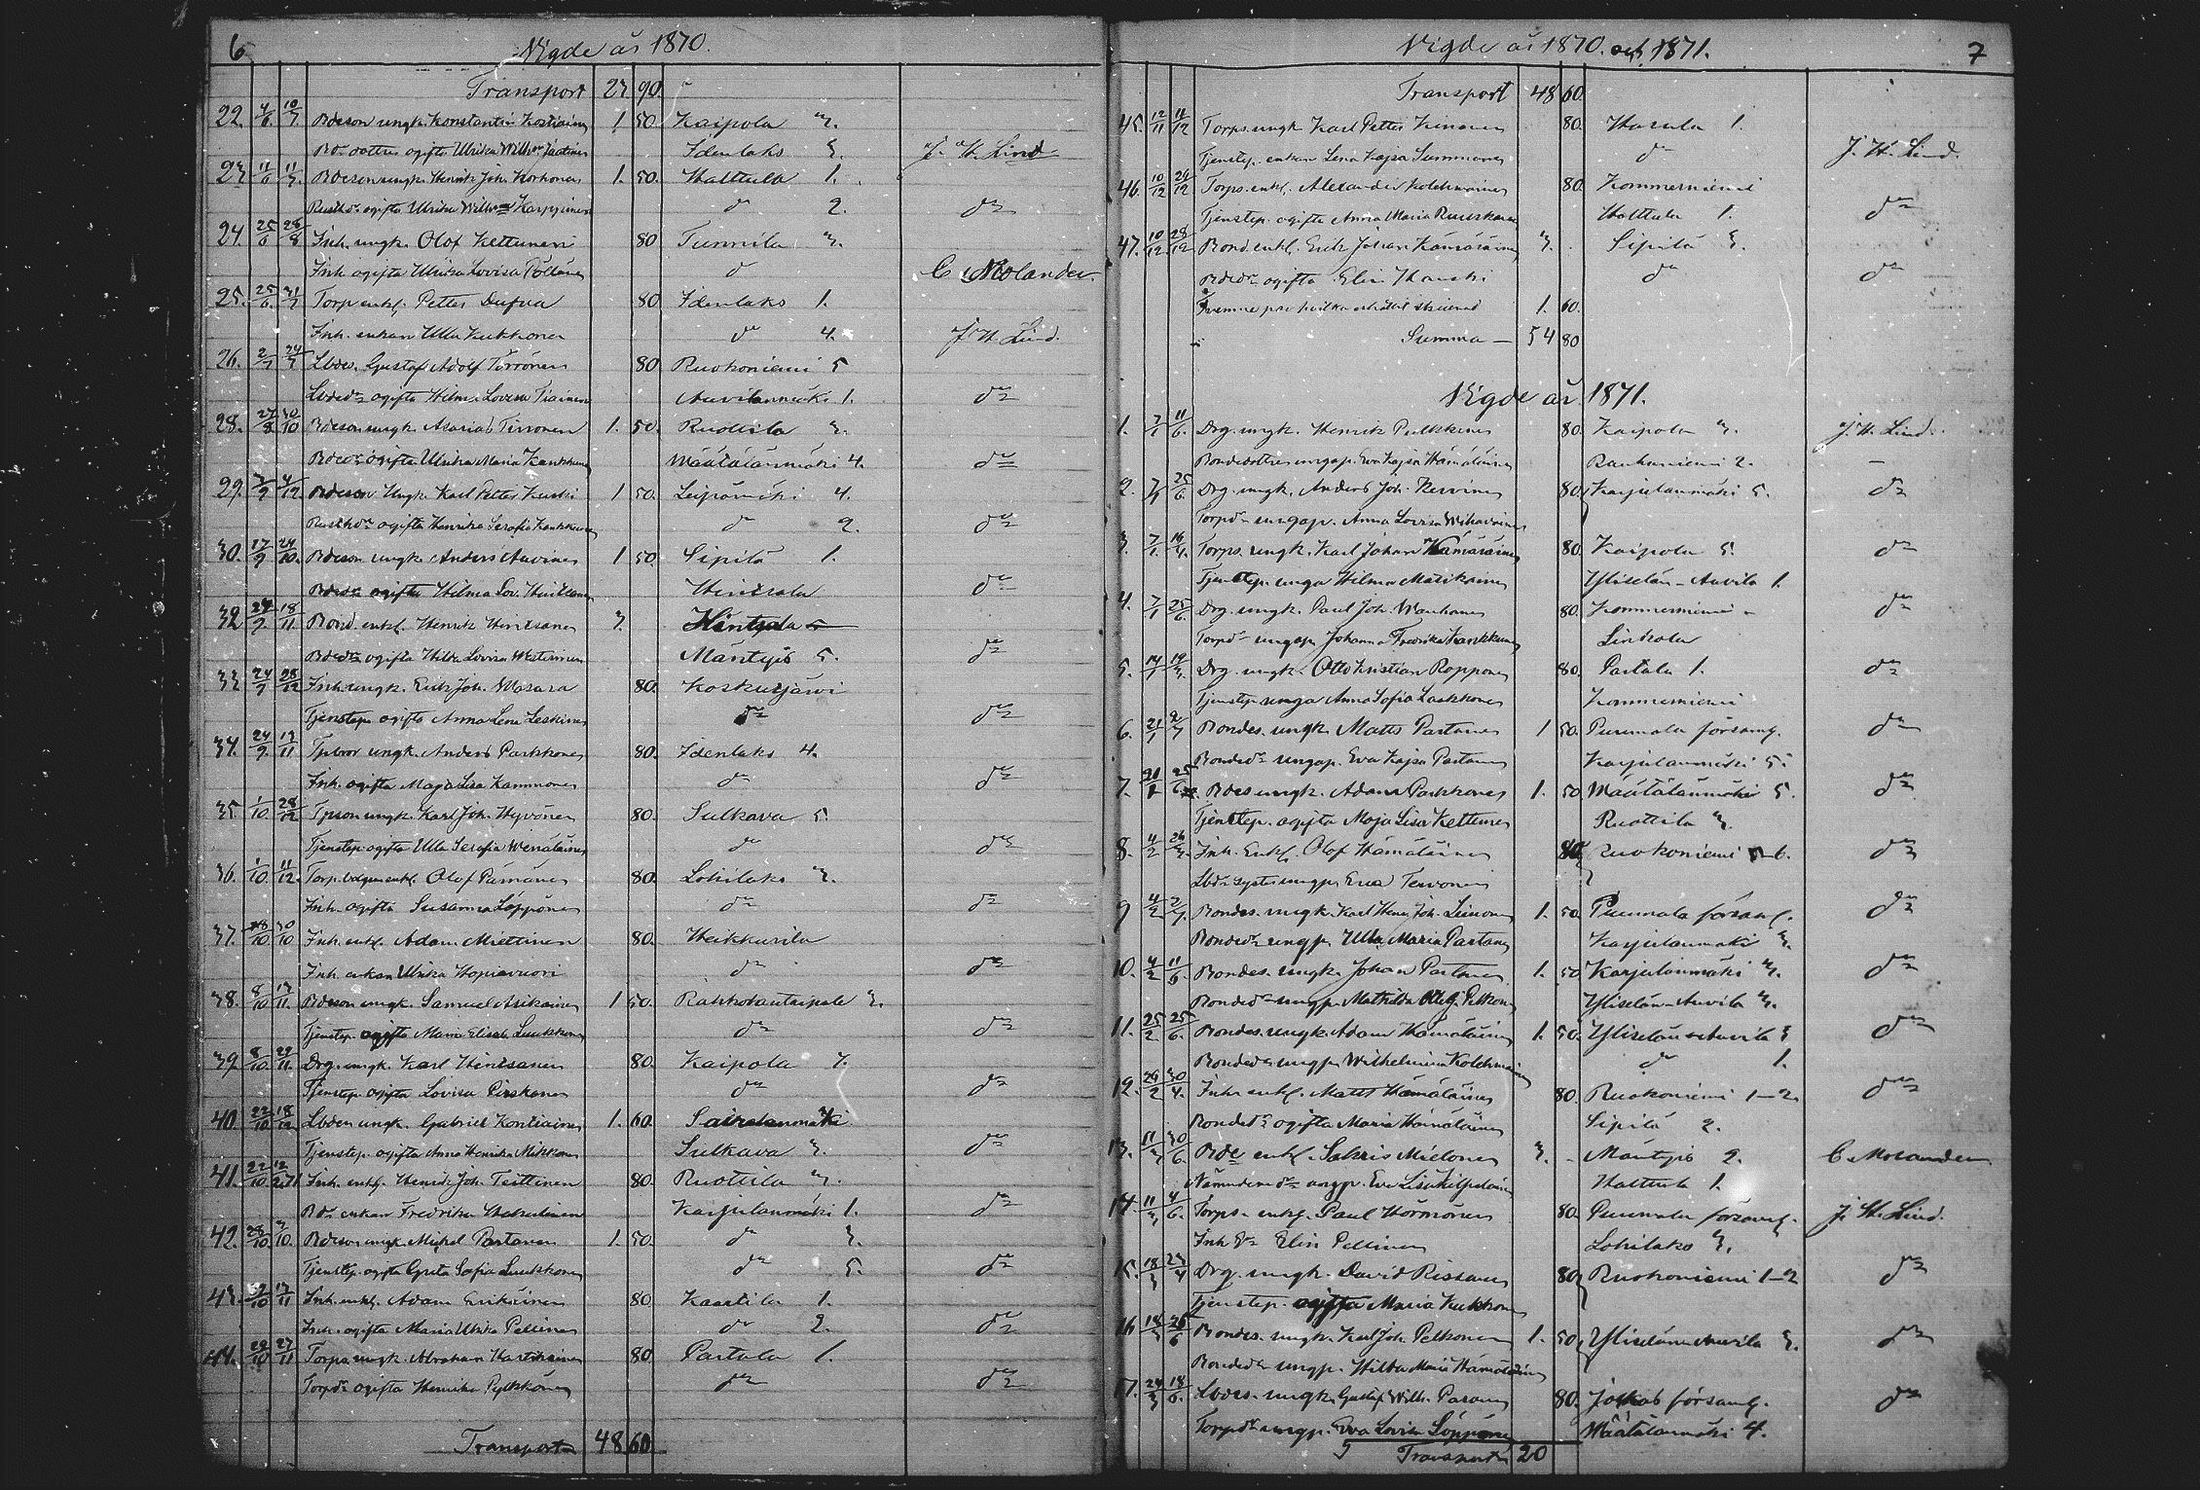 6 Vigde år 1870.
Transport 27 90
22. 4/6 10/7 Bdeson ungk. Konstantin Kostiainen 1 50 Kaipola 3.
Bdr dotter ogifta Ulrika Wilhna Idenlaks 3. J. H. Lind
23. 11/6 11/7 Bdeson ungk. Henrik Joh. Korhonen 1. 50. Halttula 1.
Rusthdr ogifta Ulrika Wilhna Karppinen do 2. do
24. 25/6 28/8 Inh. ungk. Olof Kettunen 80 Tunnila 3.
Inh. ogifta Ulrika Lovisa Pöllänen do C. Molander
25. 25/6 31/7 Torp. enkl. Petter Dufva 80 Idenlaks 1.
Inh. enkan Ulla Kukkonen do 4. J. H. Lind.
26. 2/7 24/7 Lbdes. Gustaf Adolf Törrönen 80 Ruokoniemi 5
Lbdedr ogifta Hilma Lovisa Tiainen Auvilanmäki 1. do
28. 27/8 30/10 Bdeson ungk. Asarias Tirronen 1. 50. Ruottila 3.
Bdedr ogifta Ulrika Maria Kankkunen Määtälänmäki 4. do
29. 3/9 4/12 Bdeson Ungk. Karl Petter Kurki 1 50. Leipämäki 4.
Rusthdr ogifta Henrika Serafia Kankkunen do 2. do
30. 17/9 24/10. Bdeson ungk. Anders Auvinen 1 50 Sipilä 1.
Bdedr ogifta Hilma Lov. Hintsala do
32 24/9 18/11. Bond. enkl. Henrik Hintsanen 3. Hintsala
Bdedr ogifta Hilda Lovisa Westerinen Mäntyis 5. do
33 24/9 28/12 Inh. ungk. Erik Joh. Masara 80. Koskutjärvi
Tjenstep. ogifta Anna Lena Leskinen do do
34. 24/9. 13/11 ungk. Anders Parkkonen 80. Idenlaks 4.
Inh. ogifta Maja Lisa Kammonen do do
35 1/10 28/12 Tpson ungk. Karl Joh. Hyvönen 80. Sulkava 5
Tjenstep. ogifta Ulla Serafia Venäläinen do do
36. 1/10. 11/12. Torp. enkl. Olof Parnänen 80. Lohilaks 3.
Inh. ogifta Susanna Löppönen do do
37. 8/10 30/10 Inh. enkl. Adam Miettinen 80. Heikkurila
Inh. enkan Ulrika Hopiavuori do do
38. 8/10 13/11. Bdeson ungk. Samuel Asikainen 1 50. Rahkolantaipale 3.
Tjenstep ogifta Maria Elisab. Luukkonen do do
39 8/10. 29/11. Drg. ungk. Karl Hintsanen 80. Kaipola 7.
Tjenstep. ogifta Lovisa Pirskanen do do
40. 22/10 18/12 Lbdeson ungk. Gabriel Kontiainen 1. 60.
Tjenstep. ogifta Anna Henrika Mikkonen Sulkava 3. do
41. 22/10 Inh. enkl. Henrik Joh. Teittinen 80. Ruottila 3.
Bdr enkan Fredrika Hakulinen Karjulanmäki 1. do
42. 28/10 Bdeson ungk. Michel Partanen 1. 50. do 3.
Tjenstep. ogifta Greta Sofia Luukkonen do 5. do
43. 13/11 Inh. enkl. Adam Erikäinen 80 Kaartila 1.
Inh. ogifta Maria Ulrika Pellinen do 2. do
44. 29/10 27/11 Torps. ungk. Abraham Hartikainen 80 Partala 1.
Torpdr ogifta Henrika Pylkkönen do do
Transport 48 60
Vigde år 1870. och 1871. 7
Transport 48 60.
45. 12/11 11/12 Torps. ungk. Karl Petter Kinonen 80. Harula 1.
Tjenstep. enkan Lena Kajsa Summanen do J. H. Lind.
46. 10/12 26/12 Torps. enkl. Alexander Kolehmainen 80. Kommerniemi
Tjenstep. ogifta Anna Maria Ruuskanen Halttula 1. do
47. 10/12 28/12 Bond. enkl. Erik Johan Kämäräinen 3. Sipilä 3.
Bdedr ogifta Elin Hauski do do
1. 60.
Summa — 54 80
Vigde år 1871.
1. 7/1 11/6. Drg. ungk. Henrik Pulkkinen 80. Kaipola 3. J. H. Lind.
Bondedotter ungp. Eva Kajsa Hämäläinen Rauhaniemi 2. —
2. 7/1 25/6. Drg. ungk. Anders Joh. Nervinen 80 Karjulanmäki 5. do
Torpdr ungp. Anna Lovisa Wihavainen
3. 7/1. Torps. ungk. Karl Johan Kämäräinen 80. Kaipola 5. do
Tjenstep. unga Hilma Matikainen Ylisetän-Auvila 1.
4. 7/1 25/6. Drg. ungk. Paul Joh. Wauhonen 80. Kommerniemi - do
Torpdr ungp. Johanna Fredrika Kankkunen Linkola
5. 14/1 Drg. ungk. Otto Kristian Ropponen 80. Partala 1. do
Tjenstep. unga Anna Sofia Laukkonen Kommerniemi
6. 21/1 2/7 Bondes. ungk. Matts Partanen 1 50. Puumala församl. do
Bondedr ungp. Eva Kajsa Partanen Karjulanmäki 5.
7. Bdes ungk. Adam Parkkonen 1. 50 Määtälänmäki 5. do
Tjenstep. ogifta Maja Lisa Kettunen Ruottila 3.
8. 4/2 26/3. Inh. Enkl. Olof Hämäläinen 80 Ruokoniemi 5-6. do
Lbdr syster ungp. Eva Tervonen
9 4/2 2/7. Bondes. ungk. Karl Henr. Joh. Leinonen 1. 50 Puumala församl. do
Bondedr ungp. Ulla Maria Partanen Karjulanmäki 3.
10. 4/2 11/6 Bondes. ungk. Johan Partanen 1. 50 Karjulanmäki 3. do
Bondedr ungp. Mathilda Pelkonen Ylisetän-Auvila 3.
11. 25/2 25/6. Bondes. ungk. Adam Hämäläinen 1. 50. Ylisetän-Auvila 3 do
Bondedr ungp. Wilhelmina Kolehmainen do 1.
12. 29/2 30/4. Inh. enkl. Matts Hämäläinen 80. Ruokoniemi 1-2 do
Bondedr ogifta Maria Hämäläinen Sipilä 2.
13. 11/3 30/6. Bde enkl. Sakris Mielonen 3. - Mäntyis 2. C. Molander
Nämndem. dr ungp. Eva Lisa Kilpeläinen Halttula 1.
14. 11/3 4/6. Torps. enkl. Paul Hörmönen 80. Puumala församl. J. H. Lind.
Inh. dr Elin Pellinen Lohilaks 3.
15. 18/3 23/4 Drg. ungk. David Rissanen 80 Ruokoniemi 1-2 do
Tjenstep. ogifta Maria Kukkonen
16 18/3 Bondes. ungk. Karl Joh. Pelkonen 1. 50 Ylisetän Auvila 3. do
Bondedr ungp. Hilda Maria Hämäläinen
17. 24/3 18/6. Lbdes. ungk. Gustaf Wilh. Paranen 80. Jokkas församl. do
Torpdr ungp. Eva Lovisa Löppönen Määtälänmäki 4.
Transport 20